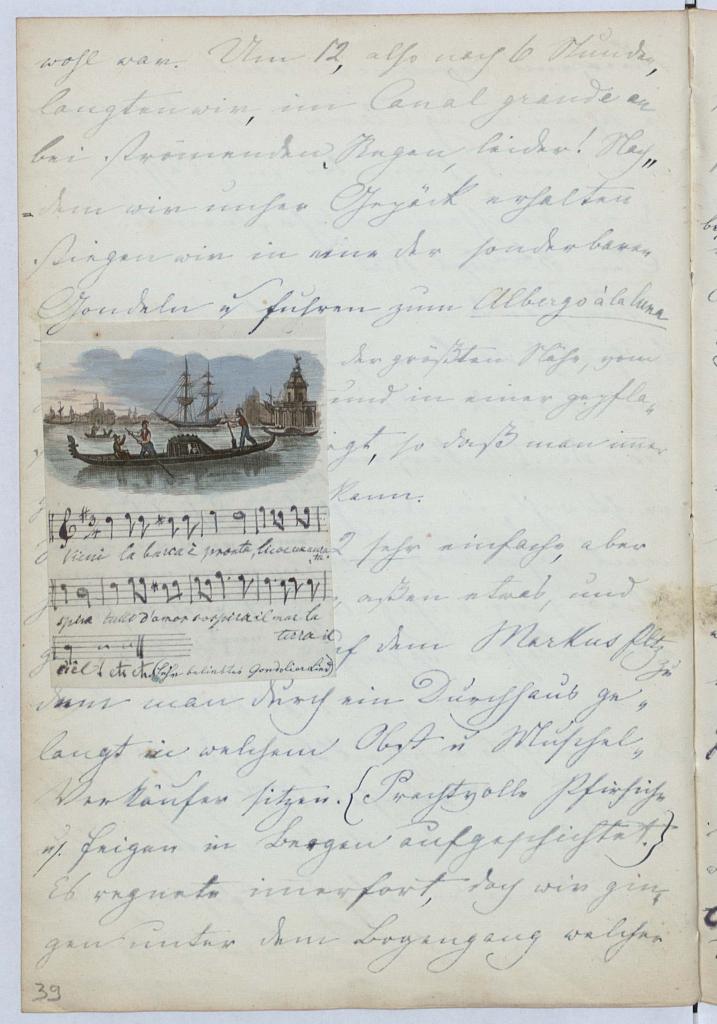 wohl war. Um 12, also nach 6 Stunden,
langten wir, im Canal grande an
bei strömenden Regen, leider! Nach„
„dem wir unser Gepäck erhalten
stiegen wir in eine der sonderbaren
Gondeln u fuhren zum Albergo à la luna
der größten Nähe, vom
und in einer gepfla„
igt, so daß man immer
kann.
Vieni la barca è pronta,
2 sehr einfache, aber
spira tutto d'amor sospira il mar la
, aßen etwas, und
terra il
ciel! etc etc (Sehr beliebtes Gondolier Lied)
f dem Markus Pltz
zu
dem man durch ein Durchhaus ge„
langt in welchem Obst u Muschel„
Verkäufer sitzen. (Prachtvolle Pfirsiche
u. Feigen in Bergen aufgeschichtet.)
Es regnete immerfort, doch wir gin„
gen unter dem Bogengang welcher
39